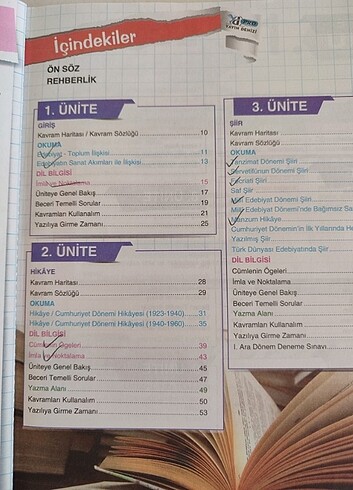 İçindekiler
YAYIN DENİZİ
ÖN SÖZ
REHBERLİK
1. ÜNİTE
GİRİŞ
Kavram Haritası / Kavram Sözlüğü 10
OKUMA
Edebiyat - Toplum İlişkisi 11
Edebiyatın Sanat Akımları ile İlişkisi 13
DİL BİLGİSİ
İmla ve Noktalama 15
Üniteye Genel Bakış 17
Beceri Temelli Sorular 19
Kavramları Kullanalım 21
Yazılıya Girme Zamanı 25
2. ÜNİTE
HİKÂYE
Kavram Haritası 28
Kavram Sözlüğü 29
OKUMA
Hikâye / Cumhuriyet Dönemi Hikâyesi (1923-1940) 31
Hikâye / Cumhuriyet Dönemi Hikâyesi (1940-1960) 35
DİL BİLGİSİ
Cümlenin Ögeleri 39
İmla ve Noktalama 43
Üniteye Genel Bakış 45
Beceri Temelli Sorular 47
Yazma Alanı 49
Kavramları Kullanalım 50
Yazılıya Girme Zamanı 53
3. ÜNİTE
ŞİİR
Kavram Haritası
Kavram Sözlüğü
OKUMA
Tanzimat Dönemi Şiiri
Servetifünun Dönemi Şiiri
Fecriati Şiiri
Saf Şiir
Millî Edebiyat Dönemi Şiiri
Millî Edebiyat Dönemi'nde Bağımsız
Manzum Hikâye
Cumhuriyet Dönemi'nin İlk Yıllarında
Yazılmış Şiir
Türk Dünyası Edebiyatında Şiir
DİL BİLGİSİ
Cümlenin Ögeleri
İmla ve Noktalama
Üniteye Genel Bakış
Beceri Temelli Sorular
Yazma Alanı
Kavramları Kullanalım
Yazılıya Girme Zamanı
I. Ara Dönem Deneme Sınavı